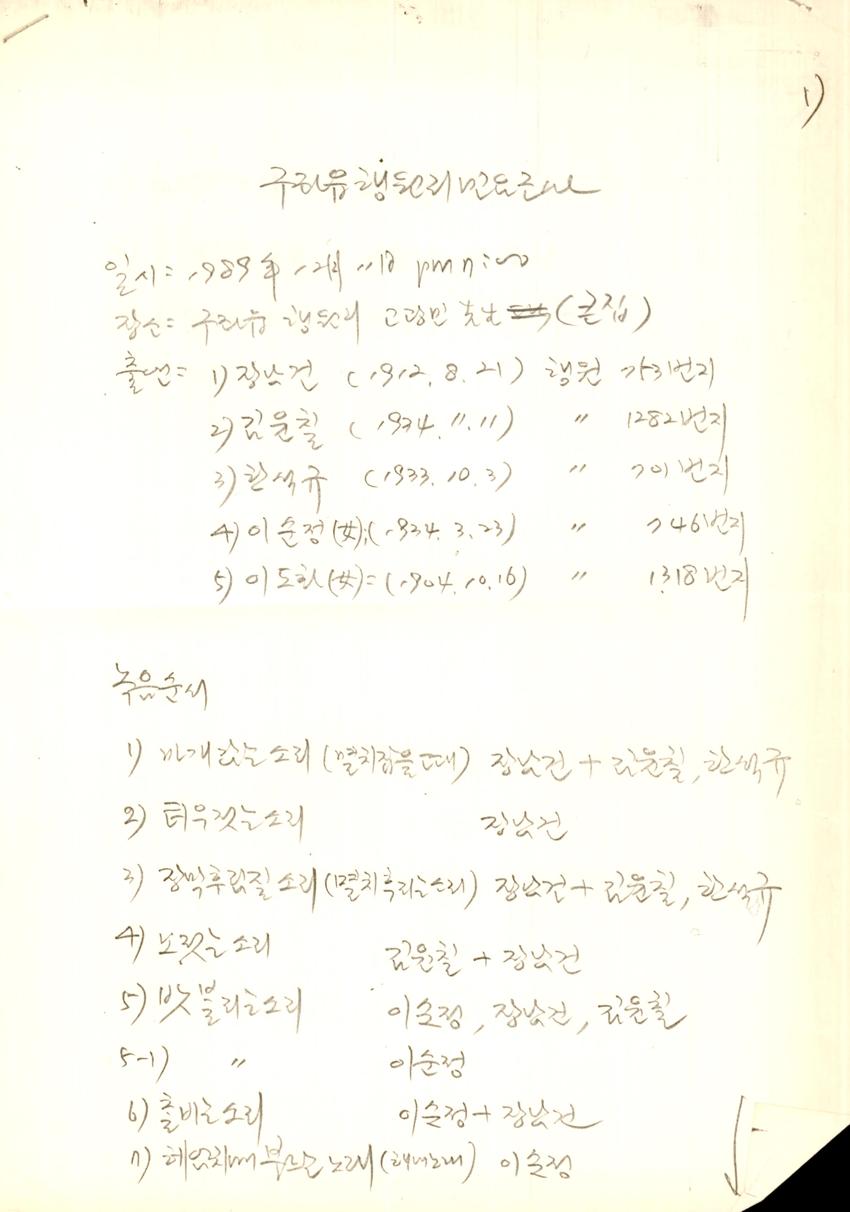 1)
구좌읍 행원리 민요조사
일시: 1989年 12月 11日 pm 7:00
장소: 구좌읍 행원리 고광민 先生 (큰집)
출연: 1) 장남건 (1912. 8. 21) 행원 753번지
2) 김윤칠 (1934. 11. 11) 〃 1282번지
3) 한석규 (1933. 10. 3) 〃 701번지
4) 이순정(女): (1924. 3. 23) 〃 746번지
5) 이도화(女): (1904. 10. 16) 〃 1318번지
녹음순서
1) 소리 (멸치잡을때) 장남건 + 김윤칠, 한석규
2) 터우젓는소리 장남건
3) 장막후림질소리 (멸치후리는소리) 장남건 + 김윤칠, 한석규
4) 노젓는소리 김윤칠 + 장남건
5) 밧볼리는소리 이순정, 장남건, 김윤칠
5-1) 〃 이순정
6) 촐비는소리 이순정 + 장남건
7) 부르는노래 (해녀노래) 이순정